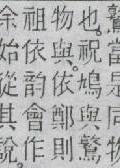 當是同物
也。祝鳩與
物與。依鄭則
祖依韵會作
余始從其說。